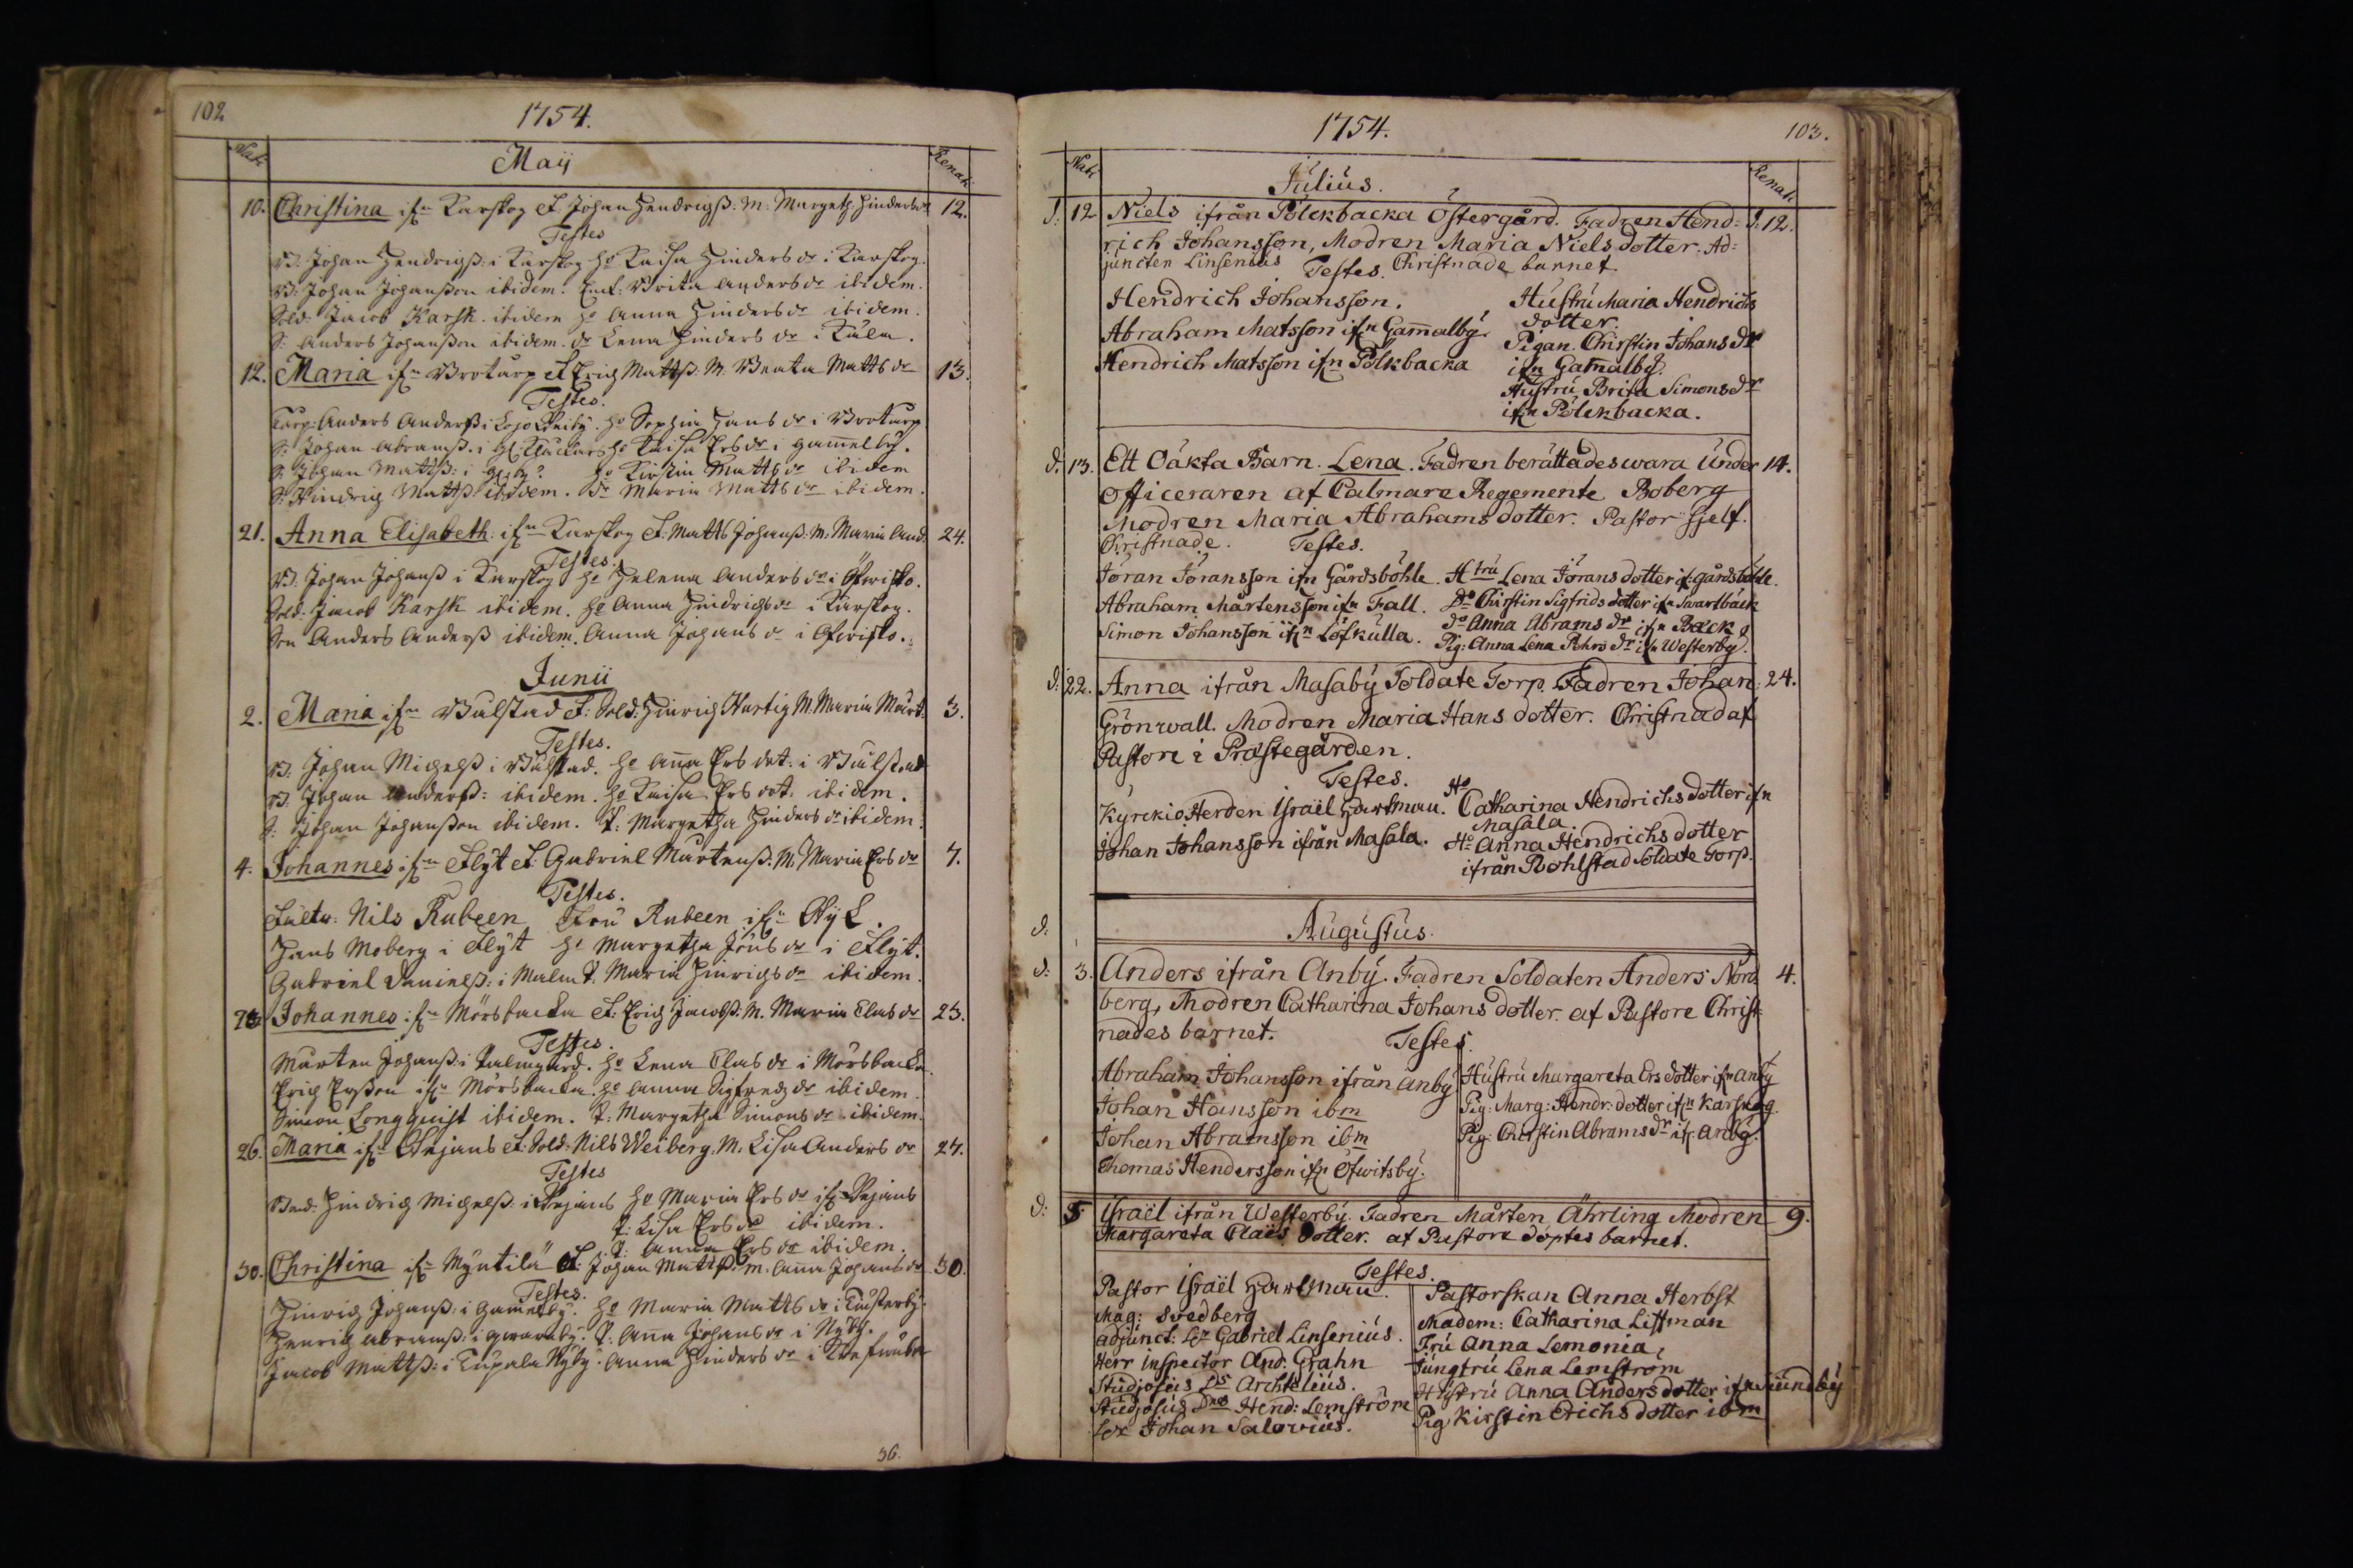 102
1754.
Nati
Maÿ
Renati
10. Christina ifn Karskog F. Johan Hendrigß: M: Margeth Hinders dr 12.
Testes
B: Johan Hendrigß: i Karskog Ho Kaisa Hinders dr i Karskog.
B: Johan Johanßon ibidem. Enk: Brita Anders dr ibidem.
Sold: Jacob Karsk ibidem Ho Anna Hinders dr ibidem.
S: Anders Johanßon ibidem. Do Lena Hinders dr i Kula.
12. Maria ifn Broturp F Erig Mattß. M. Beata Matts dr 13.
Testes.
Anders Anderß i Lojo Ho Sophia Hans dr i Broturp
S: Johan Abramß. i Ho Kaisa Ers dr i Gam̄elbÿ.
S: Johan Mattß: i Ho Kirstin Matts dr ibidem
S: Hindrig Mattß ibidem. Do Maria Matts dr ibidem.
21. Anna Elisabeth ifn Karskog F. Matts Johanß: M: Maria And. 24.
Testes.
B: Johan Johanß i Karskog Ho Helena Anders dr i
Sold: Jacob Karsk ibidem. Ho Anna Hindrichs dr i Karskog.
Anders Anderß ibidem. Anna Johans dr i
Junii
2. Maria ifn Bålstad F: Sold: Hinrig Hurtig M. Maria Mårt: 3.
Testes.
B: Johan Michelß i Bålstad. Ho An̄a Ers dot: i Bålstad
B: Johan Anderß: ibidem. Ho Kaisa Ers dot: ibidem.
S: Johan Johanßon ibidem. P: Margetha Hinders dr ibidem.
4. Johannes ifn Flÿt F: Gabriel Mårtenß: M: Maria Ers dr 7.
Testes.
Nils Rubeen Fru Rubeen ifn
Hans Moberg i Flÿt Ho Margetha Jöns dr i Flÿt.
Gabriel Danielß: i Malm P: Maria Hinrichs dr ibidem.
Johannes ifn Mörsbacka F: Erig Jacobß. M. Maria Clas dr 23.
Testes.
Mårten Johanß: i Ho Lena Clas dr i Mörsbacka.
Erig Erßon ifn Mörsbacka. Ho Anna Sigfreds dr ibidem.
Simon Longquist ibidem. P: Margetha Simons dr ibidem.
26. Maria ifn F: Sold: Nils Weiberg. M. Lisa Anders dr 27.
Testes
Hindrich Michelß: i Ho Maria Ers dr ifn
P: Lisa Ers dr ibidem.
P: Anna Ers dr ibidem.
30. Christina ifn Mÿntilä F: Johan Mattß. M. An̄a Johans dr 30.
Testes.
Hinrig Johanß: i Gam̄elbÿ. Ho Maria Matts dr i
Henrig Abramß: i P: An̄a Johans dr i Nÿbÿ.
Jacob Mattß: i Nÿbÿ. Anna Hinders dr i
36.
1754.
103.
Nati
Julius.
Renati
d: 12 Niels ifrån Pölckbacka Östergård. Fadren Hend= d: 12.
rich Johansson, Modren Maria Nielsdotter. Ad=
juncten Linsenius Testes. Christnade barnet.
Hendrich Johansson. Hustru Maria Hendrichs
dotter.
Abraham Matsson ifn Gam̄albÿ. Pigan. Chirstin Johans dr
Hendrich Matsson ifn Pölkbacka ifn Gam̄albÿ.
Hustru Brita Simons dr
ifn Pölckbacka.
d. 13. Ett Oäkta Barn. Lena. Fadren berättades wara Under 14.
officeraren af Calmare Regemente Boberg
Modren Maria Abrahamsdotter. Pastor sjelf.
Christnade. Testes.
Jöran Jöransson ifn Gårdsböhle. Htru Lena Jöransdotter if: gårdsböhle.
Abraham Mårtensson ifn Fall. Do Chirstin Sigfridsdotter ifn Swartbäck
Simon Johansson ifn Löfkulla. do Anna Abrams dr ifn Back
Pig: Anna Lena Pehrs dr ifn Westerbÿ.
d: 22. Anna ifrån Masabÿ Soldate Torp. Fadren Johan 24.
Grönwall. Modren Maria Hansdotter. Christnad af
Pastore i Prästegården.
Testes.
Kÿrckio Herden Israël Hartman. Ho Catharina Hendrichsdotter ifn
Masala.
Johan Johansson ifrån Masala. Ho Anna Hendrichsdotter
ifrån Bohlstad Soldate Torp.
d: Augustus.
d: 3. Anders ifrån Anbÿ. Fadren Soldaten Anders Nord 4.
berg, Modren Catharina Johansdotter. af Pastore Christ=
nades barnet.
Testes.
Abraham Johansson ifrån Anbÿ Hustru Margareta Ersdotter ifn Anbÿ
Johan Hansson ibm Pig: Marg: Hendr: dotter ifn Karskog.
Johan Abramsson ibm Pig: Chirstin Abrams dr if: Anbÿ.
Thomas Hendersson ifn Öfwitsbÿ.
d: 5 Israël ifrån Westerbÿ. Fadren Mårten Åhrling Modren 9.
Margareta Claësdotter. af Pastore döptes barnet.
Testes.
Pastor Israël Hartman. Pastorskan Anna Herbst
Mag: Svedberg Madem: Catharina Littman
Adjunct: Hr Gabriel Linsenius. Fru Anna Lemonia,
Herr Inspector And. Grahn Jungfru Lena Lemström
Studjosus Ds Archtelius. Hustru Anna Andersdotter ifn Siundbÿ
Studjosus Dns Hend: Lemström Pig Kirstin Erichsdotter ibm
Hr Johan Salovius.